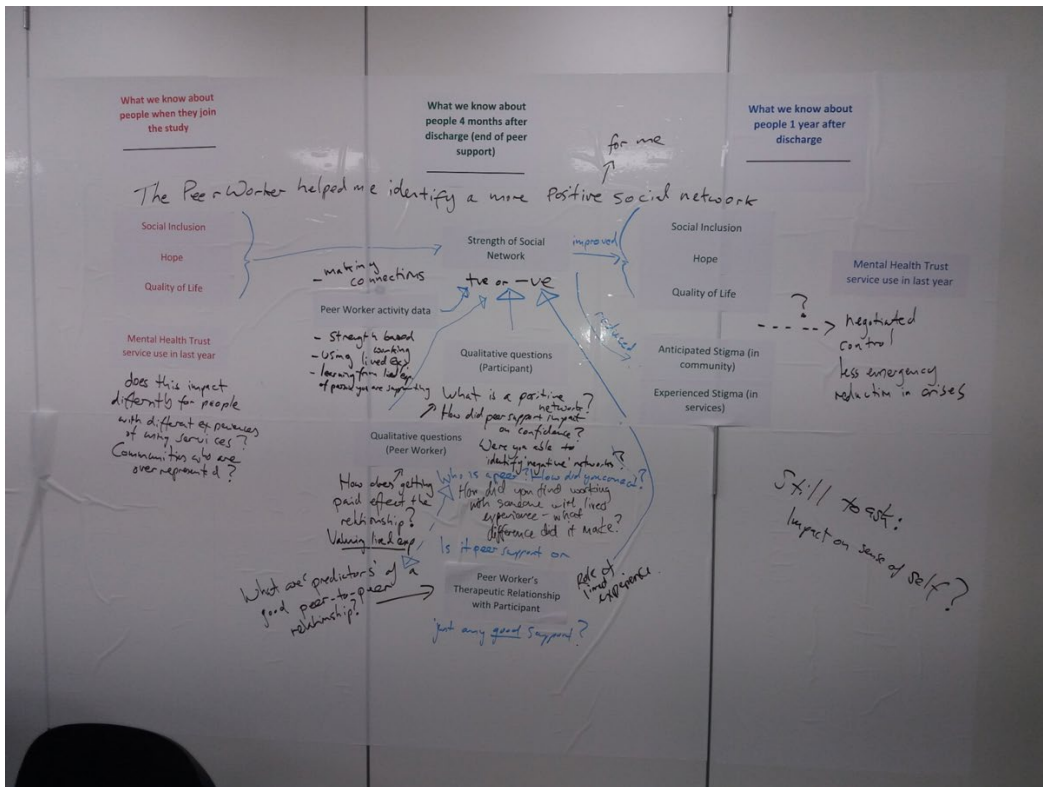 What we know about
people when they join
the study
What we know about
people 4 months after
discharge (end of peer
support)
What we know about
people 1 year after
discharge
for me
The Peer Worker helped me identify a more Positive social network
Social Inclusion
Hope
Quality of Life
Mental Health Trust
service use in last year
does this impact
differntly for people
with different experiences
of using services?
Communities who are
over represented?
Strength of Social
Network
improved
reduced
- making
connections
+ve or -ve
Peer Worker activity data
- Strength based
working
- Using lived exp
- learning from lived exp
of person you are supporting
Qualitative questions
(Participant)
What is a positive
network?
How did peer support impact
on confidence?
Were you able to
identify 'negative' networks?
Qualitative questions
(Peer Worker)
Who is a peer? How did you connect?
How does getting
paid effect the
relationship?
Valuing lived exp
How did you find working
with someone with lived
experience - what
difference did it make?
Is it peer support or
Peer Worker's
Therapeutic Relationship
with Participant
just any good support?
What are 'predictors' of a
good peer-to-peer
relationship?
Role of
lived
experience
Social Inclusion
Hope
Quality of Life
Anticipated Stigma (in
community)
Experienced Stigma (in
services)
Mental Health Trust
service use in last year
?
negotiated
control
less emergency
reduction in crises
Skill to ask:
Impact on sense of self?